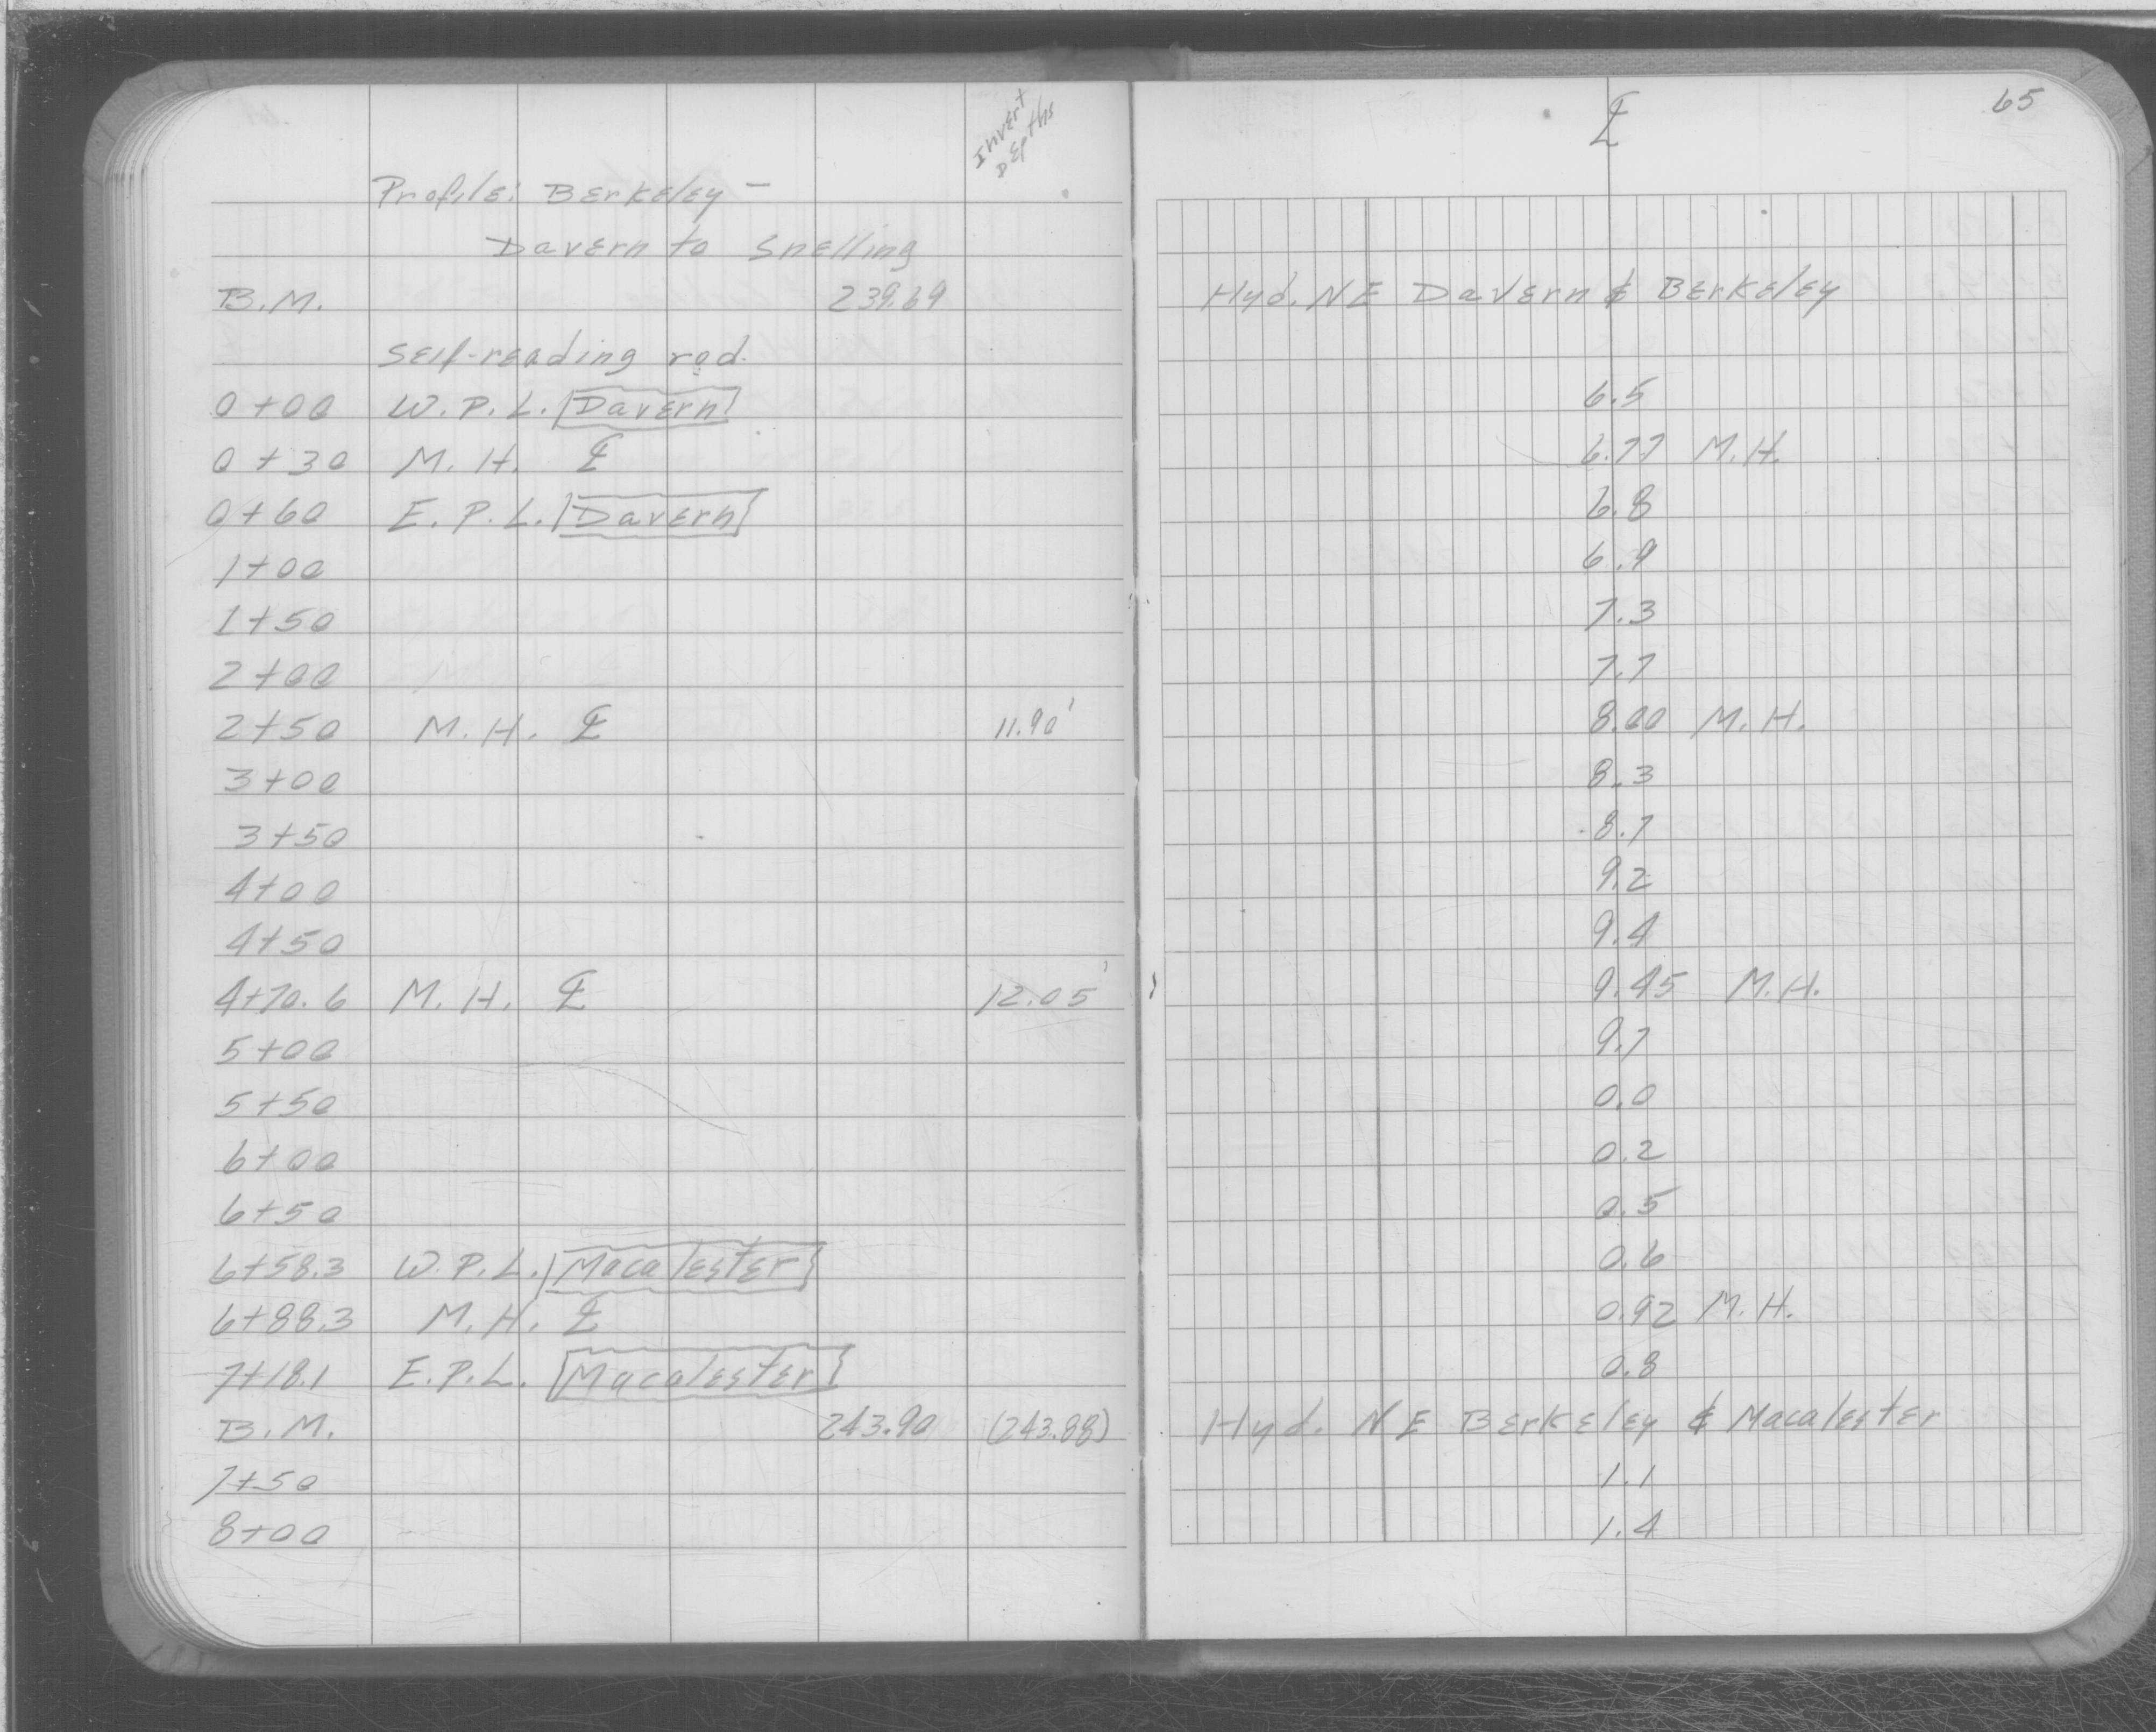 Invert
Depths
Profile: Berkeley –
Davern to Snelling
B.M. 239.69
Self-reading rod.
0+00 W.P.L. Davern
0+30 M.H. ℄
0+60 E.P.L. Davern
1+00
1+50
2+00
2+50 M.H. ℄ 11.90'
3+00
3+50
4+00
4+50
4+70.6 M.H. ℄ 12.05'
5+00
5+50
6+00
6+50
6+58.3 W.P.L. Macalester
6+88.3 M.H. ℄
7+18.1 E.P.L. Macalester
B.M. 243.90 (243.88)
7+50
8+00
℄ 65
Hyd. NE Davern & Berkeley
6.5
6.77 M.H.
6.8
6.9
7.3
7.7
8.00 M.H.
8.3
8.7
9.2
9.4
9.45 M.H.
9.7
0.0
0.2
0.5
0.6
0.92 M.H.
0.8
Hyd. NE Berkeley & Macalester
1.1
1.4